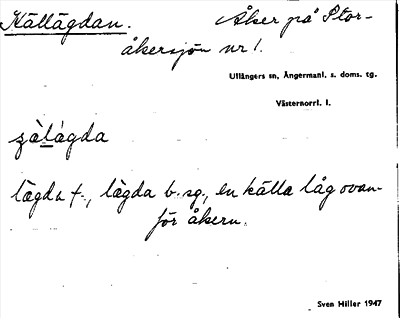 Källägdan. Åker på Stor-
åkersjön nr 1.
Ullångers sn, Ångermanl. s. doms. tg.
Västernorrl. l.
lägda f., lägda b. sg., en källa låg ovan-
för åkern.
Sven Hiller 1947